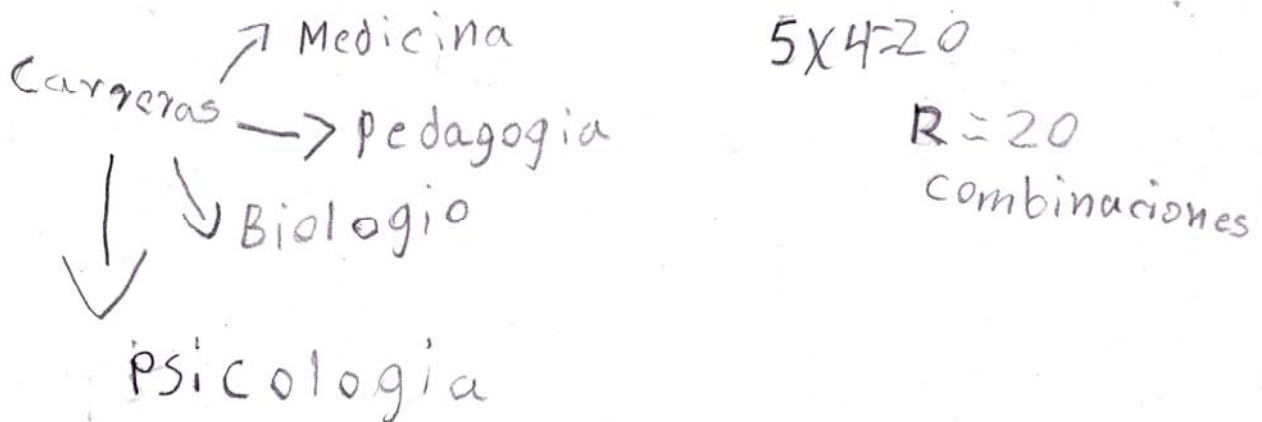 Carreras
Medicina
Pedagogia
Biologio
Psicologia
5x4=20
R=20
combinaciones